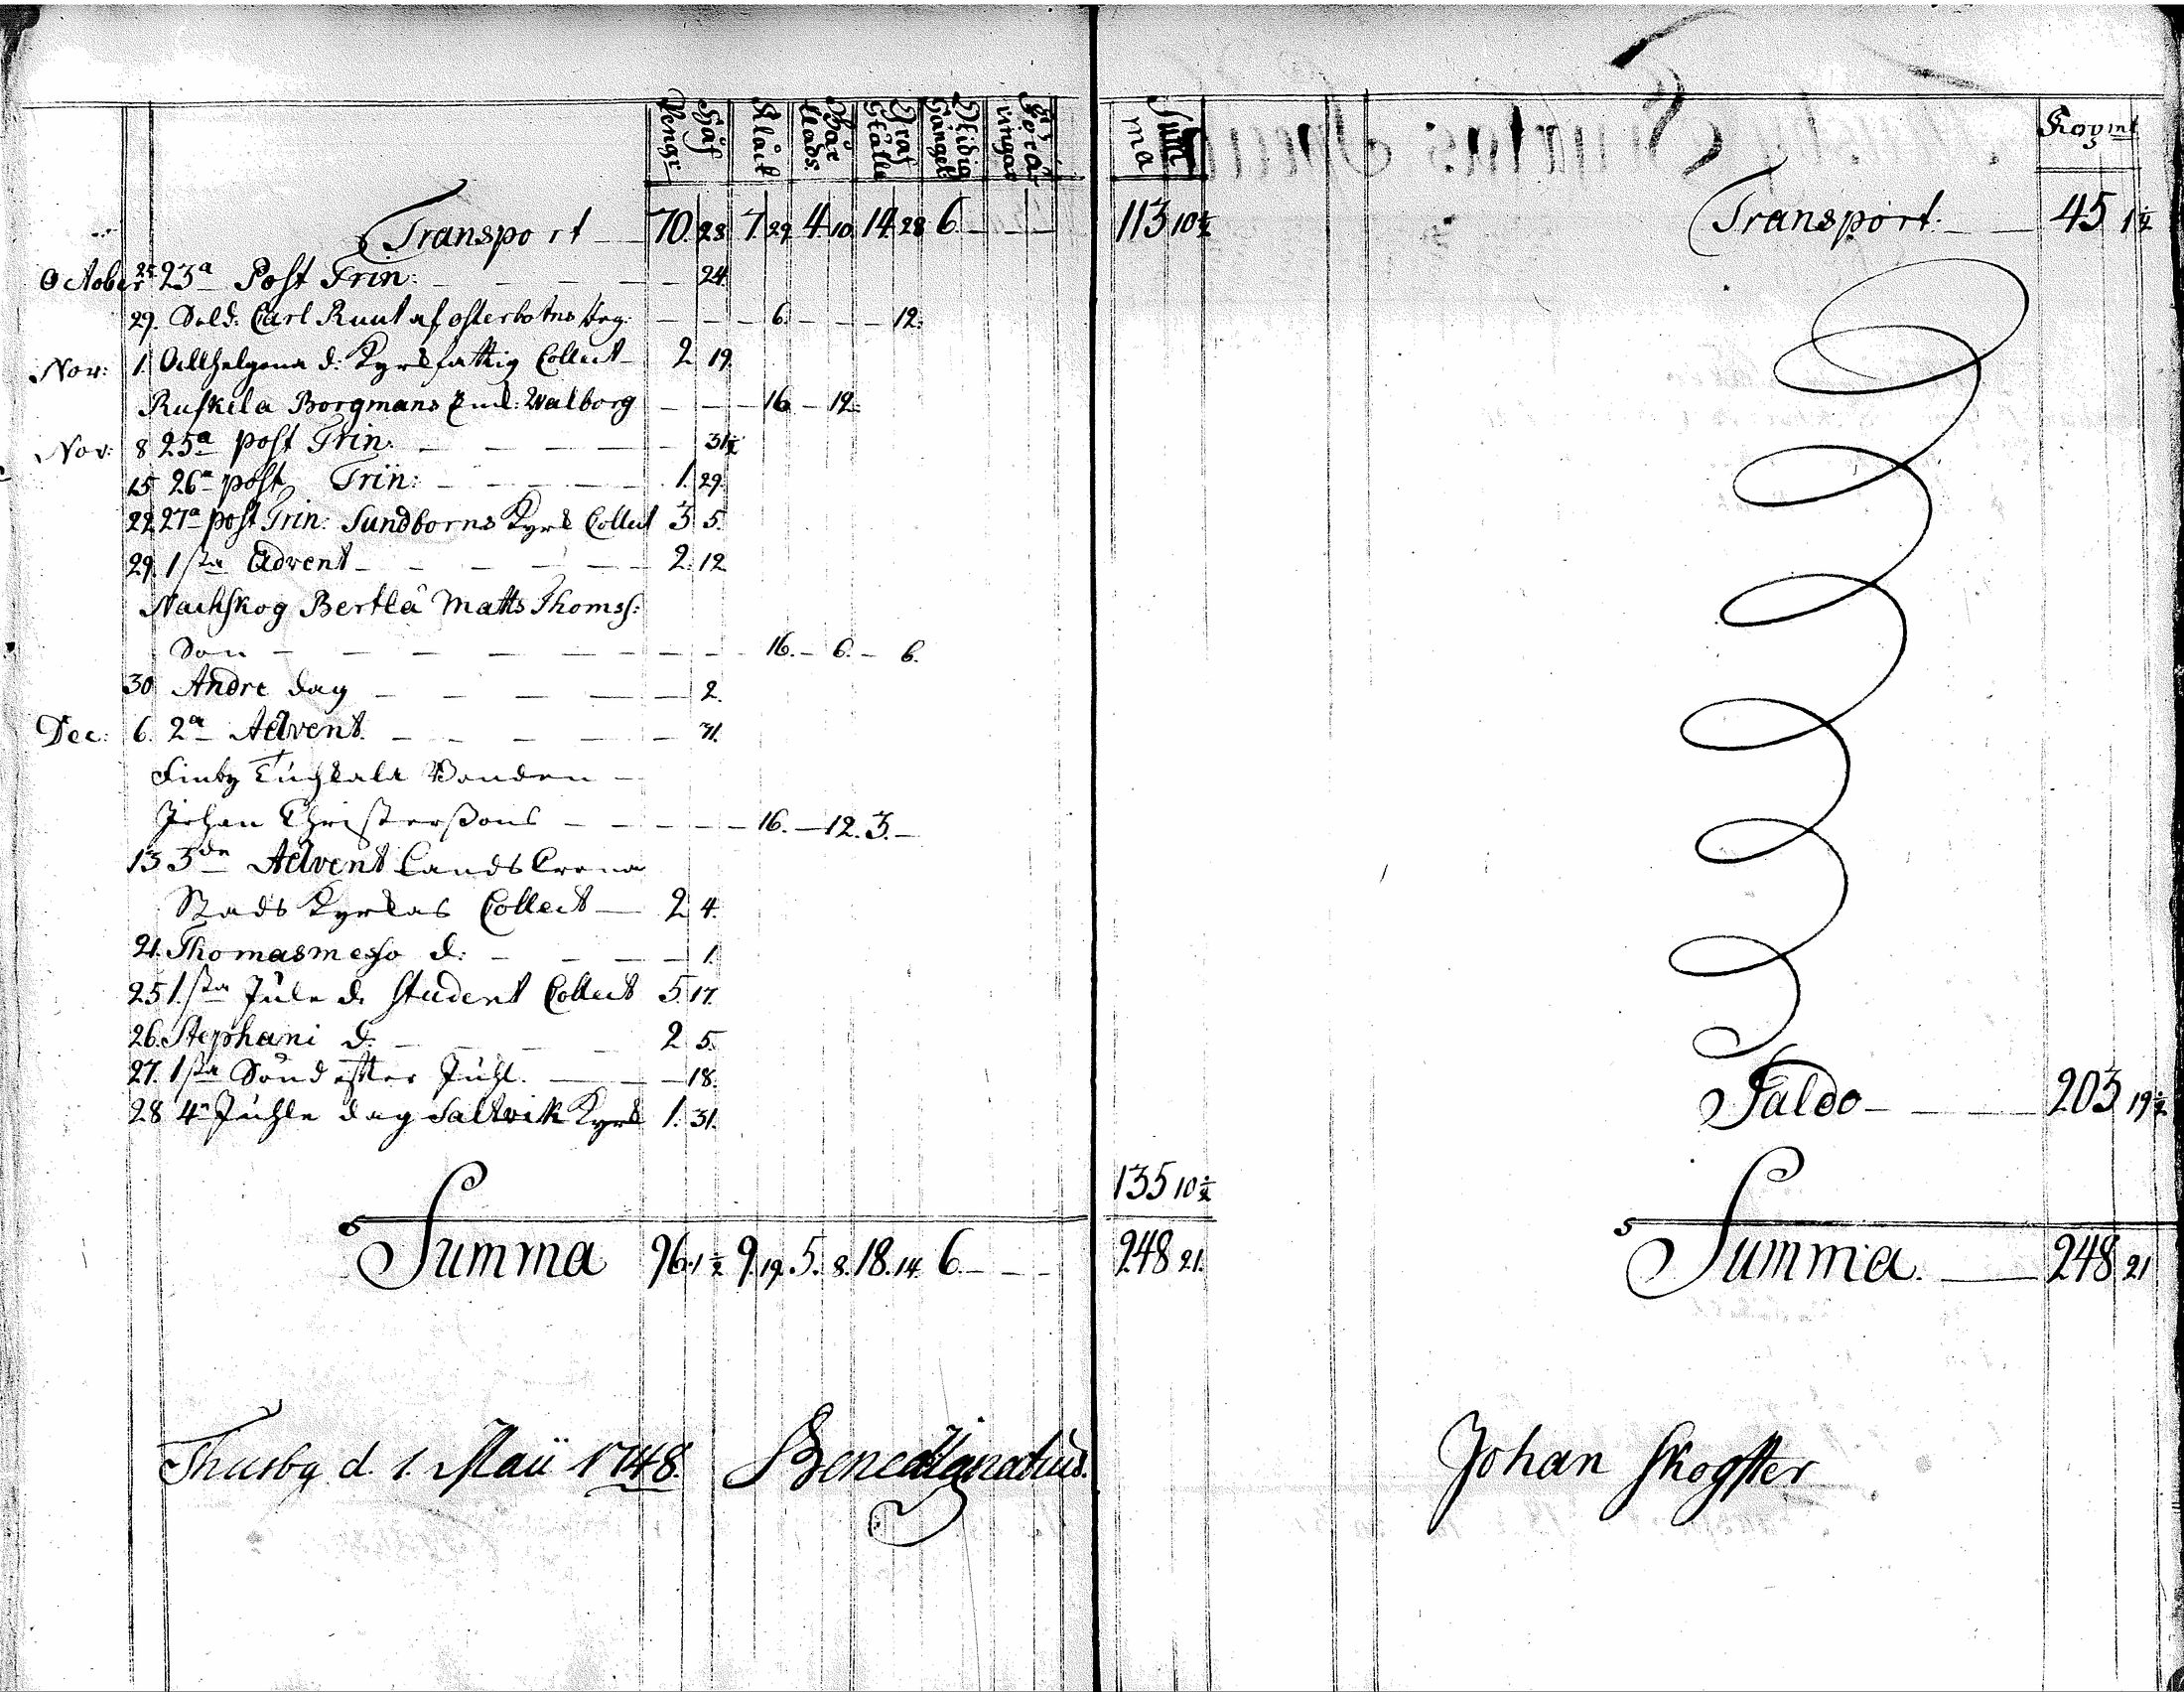 Håf Pengr: Klåck Bår Clads: Graf Ställe Städig Gångel Förä ringar Sum ma
Transport — 70. 23. 7. 29. 4. 10. 14. 28. 6. — — —
October 25 23a Post Trin: — — — — 24.
29. Sold: Carl Ruut af Osterbotns Reg: — — — 6. — — — 12.
Nov: 1. Allhelgona d: Kyrkfattig Collect — 2 19.
Ruskela Borgmans Walborg — — — 16 — 12.
Nov: 8 25a post Trin: — — — — 31½
15 26a post Trin: — — — — 1. 29.
22 27a post Trin: Sundborns Kyrk Collect 3 5.
29. 1sta Advent — — — — 2. 12
Nachskog Bertla Matts Thomss:
Son — — — — — — — 16. — 6. — 6.
30 Andre dag — — — — 2.
Dec: 6. 2a Advent. — — — — 31.
Finby Bonden —
Johan Christerssons — — — — 16. — 12. 3. —
13 3de Advent Landscrona
Stads Kyrkas Collect — 2 4.
21. Thomasmesso d: — — — — 1.
25 1sta Jule d. Student Collect 5. 17.
26. Stephani d. — — — 2 5.
27. 1sta Sönd efter Juhl. — — 18.
28 4a Juhle dag Saltvik Kyrk 1. 31.
Summa 96. 1½ 9. 19. 5. 8. 18. 14 6. — — —
Thusby d. 1. Maii 1748. Bened Ignatius.
113 10½
135 10½
248 21.
Koymt
Transport: — — 45 1½
Saldo — — — 203 19½
Summa. — 248 21
Johan Skogster